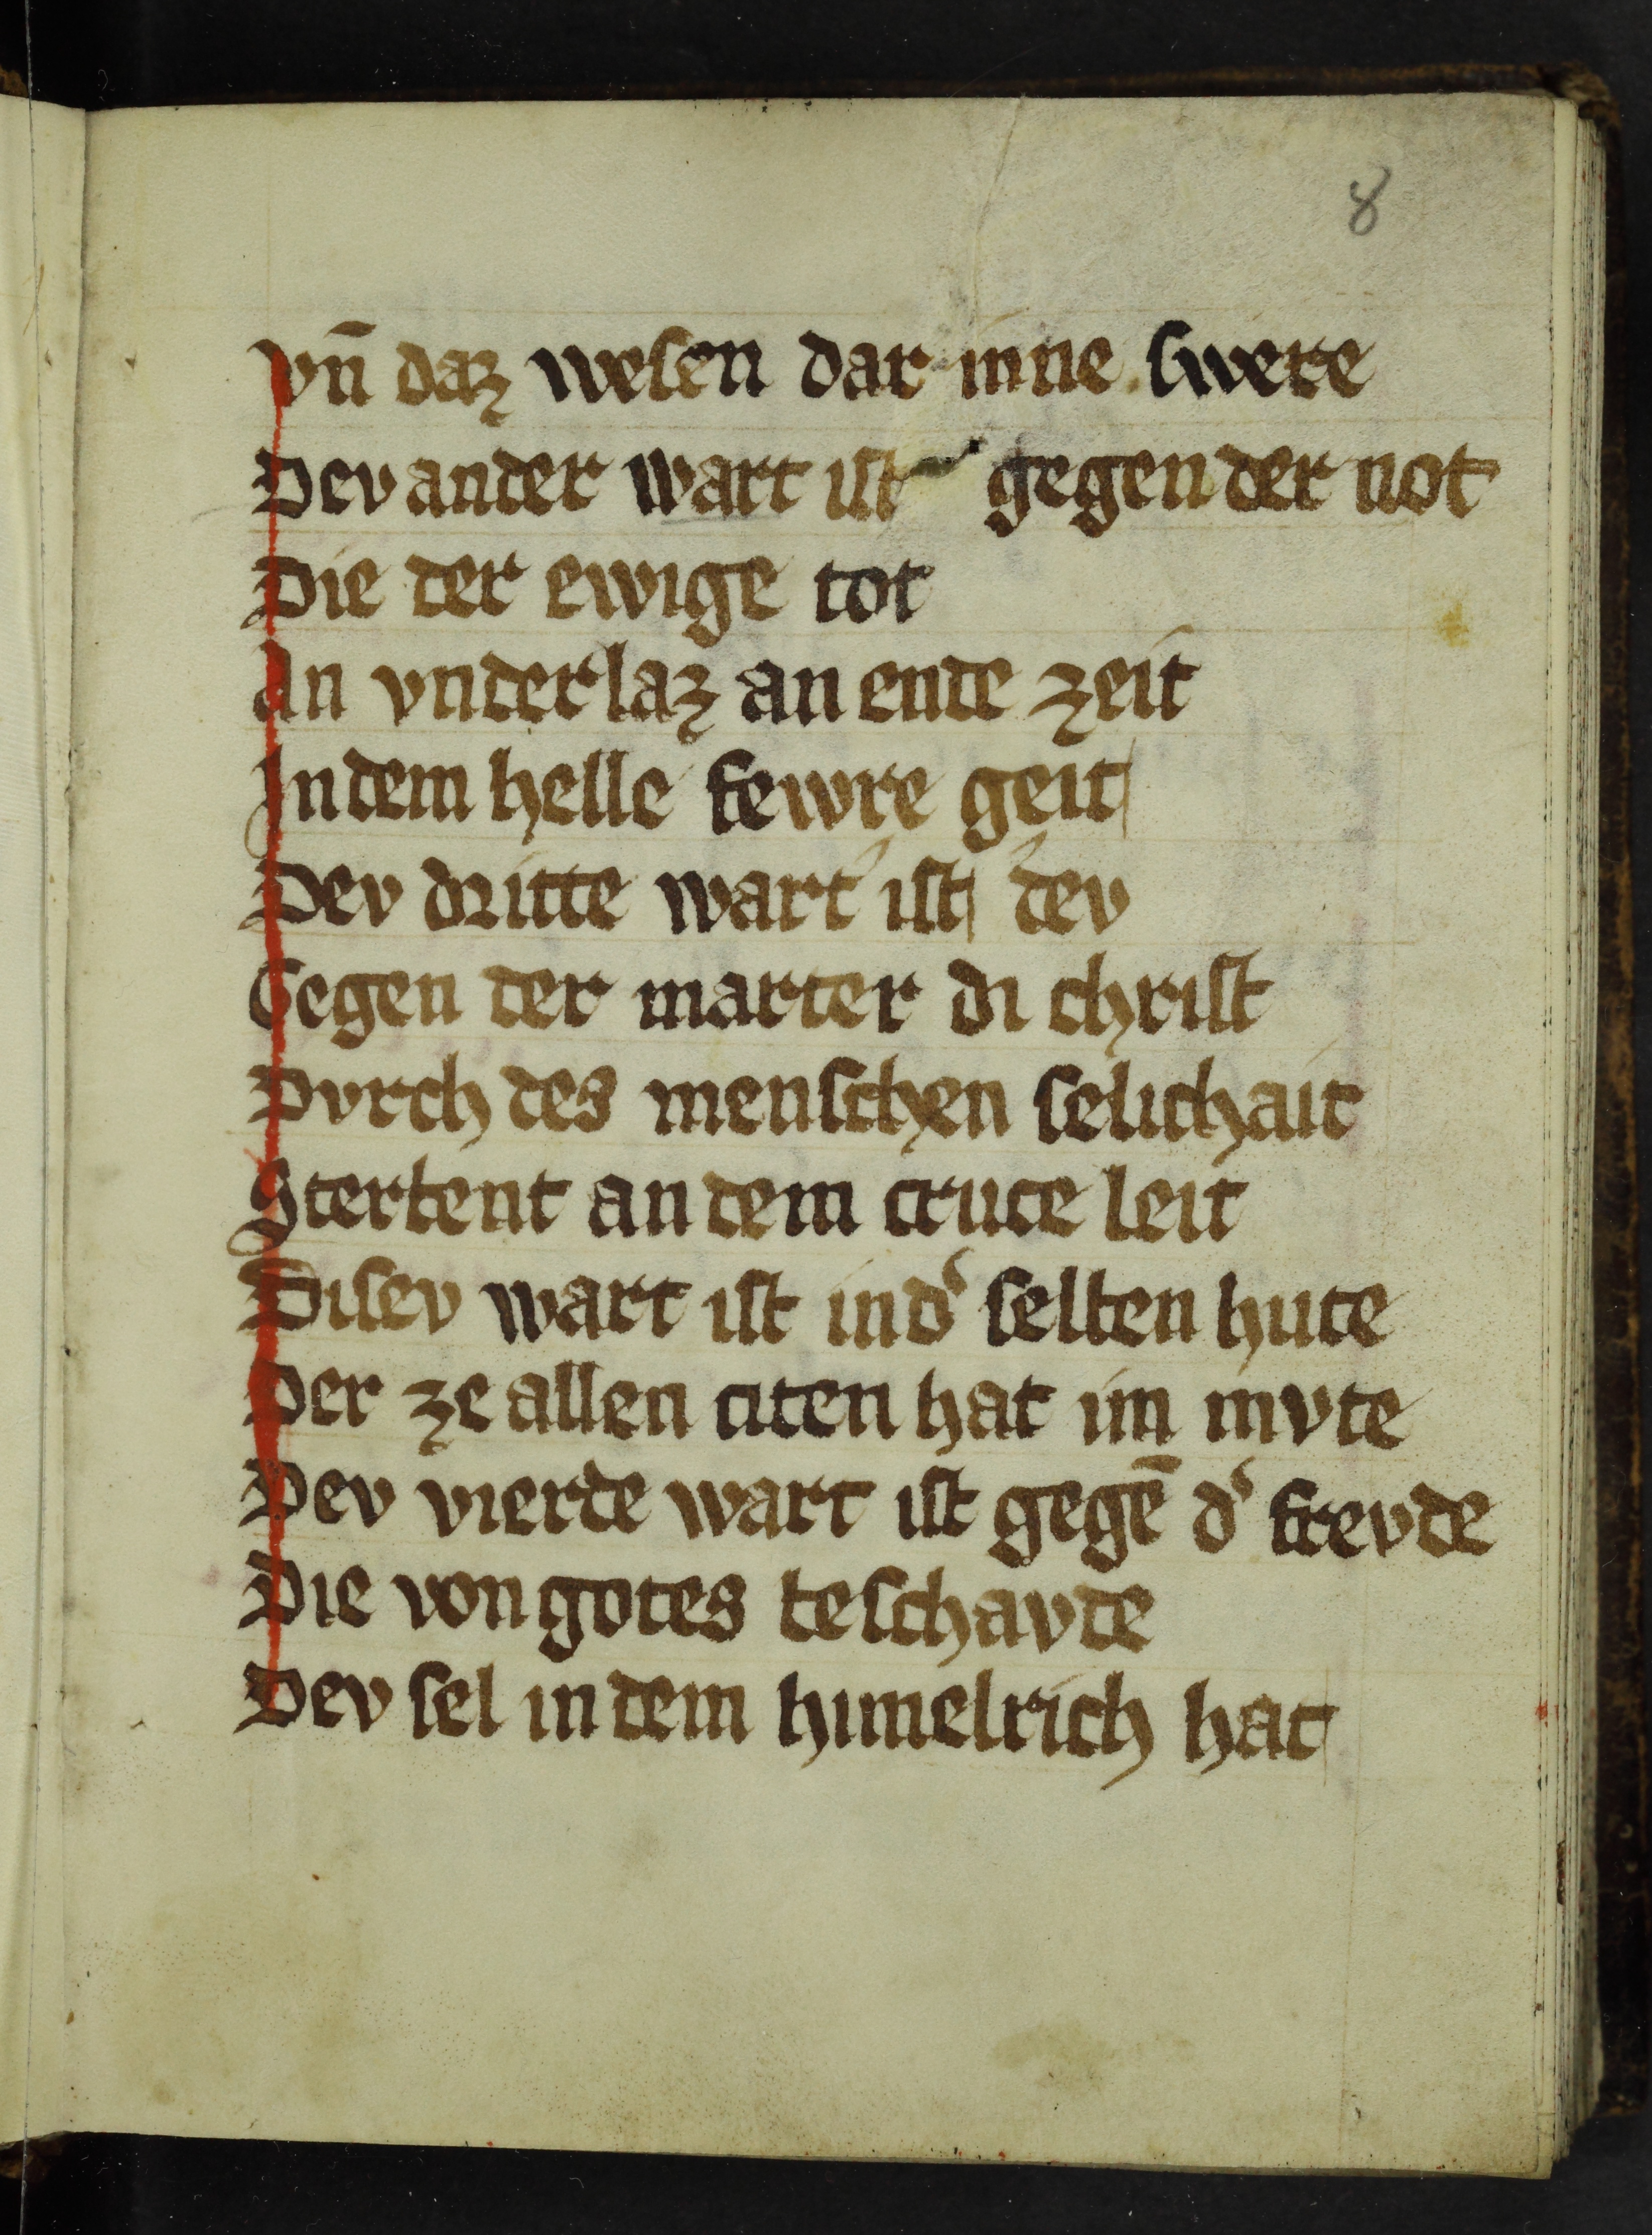 8
vn̄ daz wesen dar inne swere
Dev ander wart ist gegen der not
Die der ewige tot
An vnderlaz an ende zeit
In dem helle fewre geit
Dev dritte wart ist dev
Gegen der marter di christ
Dvrch des menschen selichait
Sterbent an dem cruce leit
Disev wart ist in dˀ selben hute
Der ze allen citen hat im mvte
Dev vierde wart ist gegē dˀ frevde
Die von gotes beschavde
Dev sel in dem himelrich hat